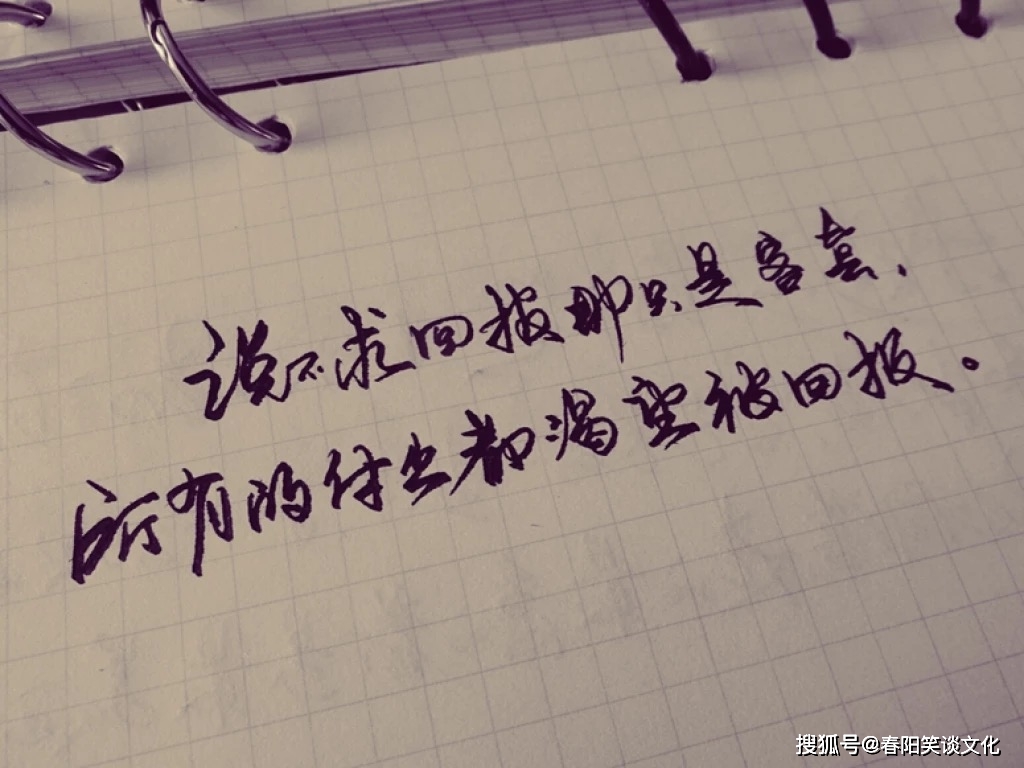 说不求回报那只是客套，
所有的付出都渴望被回报。
搜狐号@春阳笑谈文化